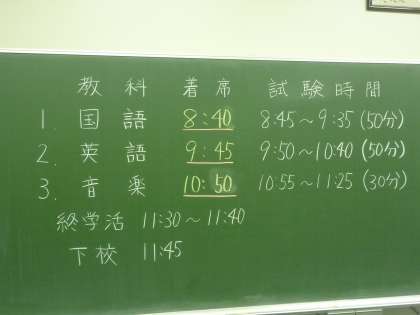 教科 着席 試験時間
1. 国語 8:40 8:45～9:35(50分)
2. 英語 9:45 9:50～10:40(50分)
3. 音楽 10:50 10:55～11:25(30分)
終学活 11:30～11:40
下校 11:45